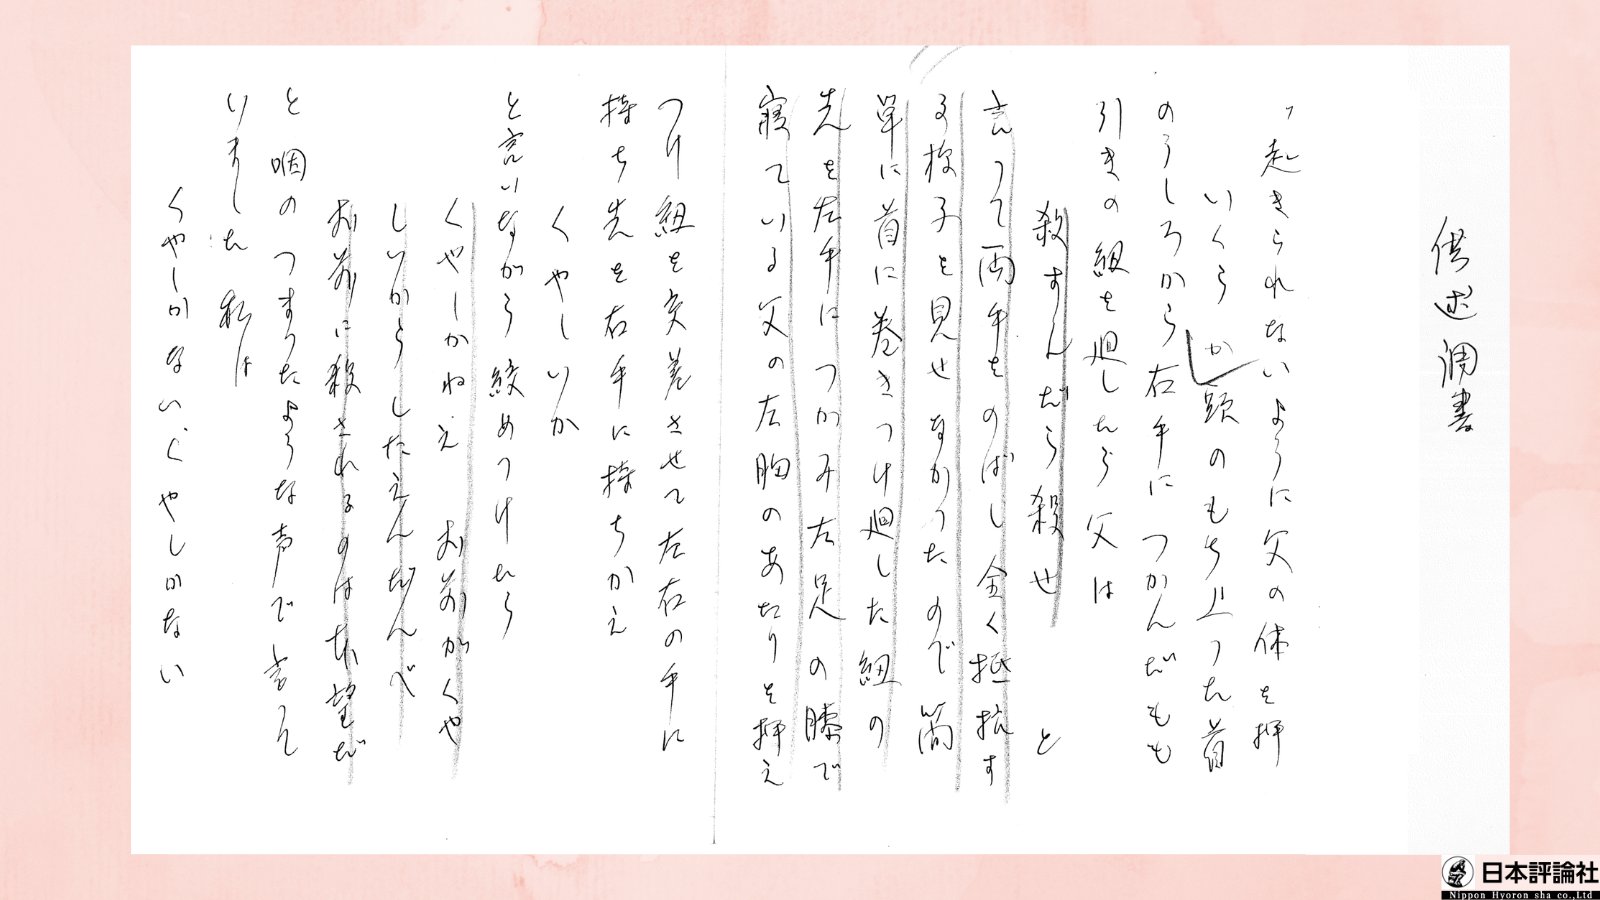 供述調書
「起きられないように父の体を押
いくらか頭のもち上つた首
のうしろから右手につかんだもも
引きの紐を廻したら父は
殺すんだら殺せ と
言つて両手をのばし全く抵抗す
る様子を見せなかつたので簡
単に首に巻きつけ廻した紐の
先を左手につかみ左足の膝で
寝ている父の左胸のあたりを押え
つけ紐を交差させて左右の手に
持ち先を右手に持ちかえ
くやしいか
と言いながら絞めつけたら
くやしかねえ お前がくや
しいからしたえんだんべ
お前に殺されるのは本望だ
と咽のつまつたような声で言つて
いました 私は
くやしかない、くやしかない
日本評論社
Nippon Hyoron sha co.,Ltd